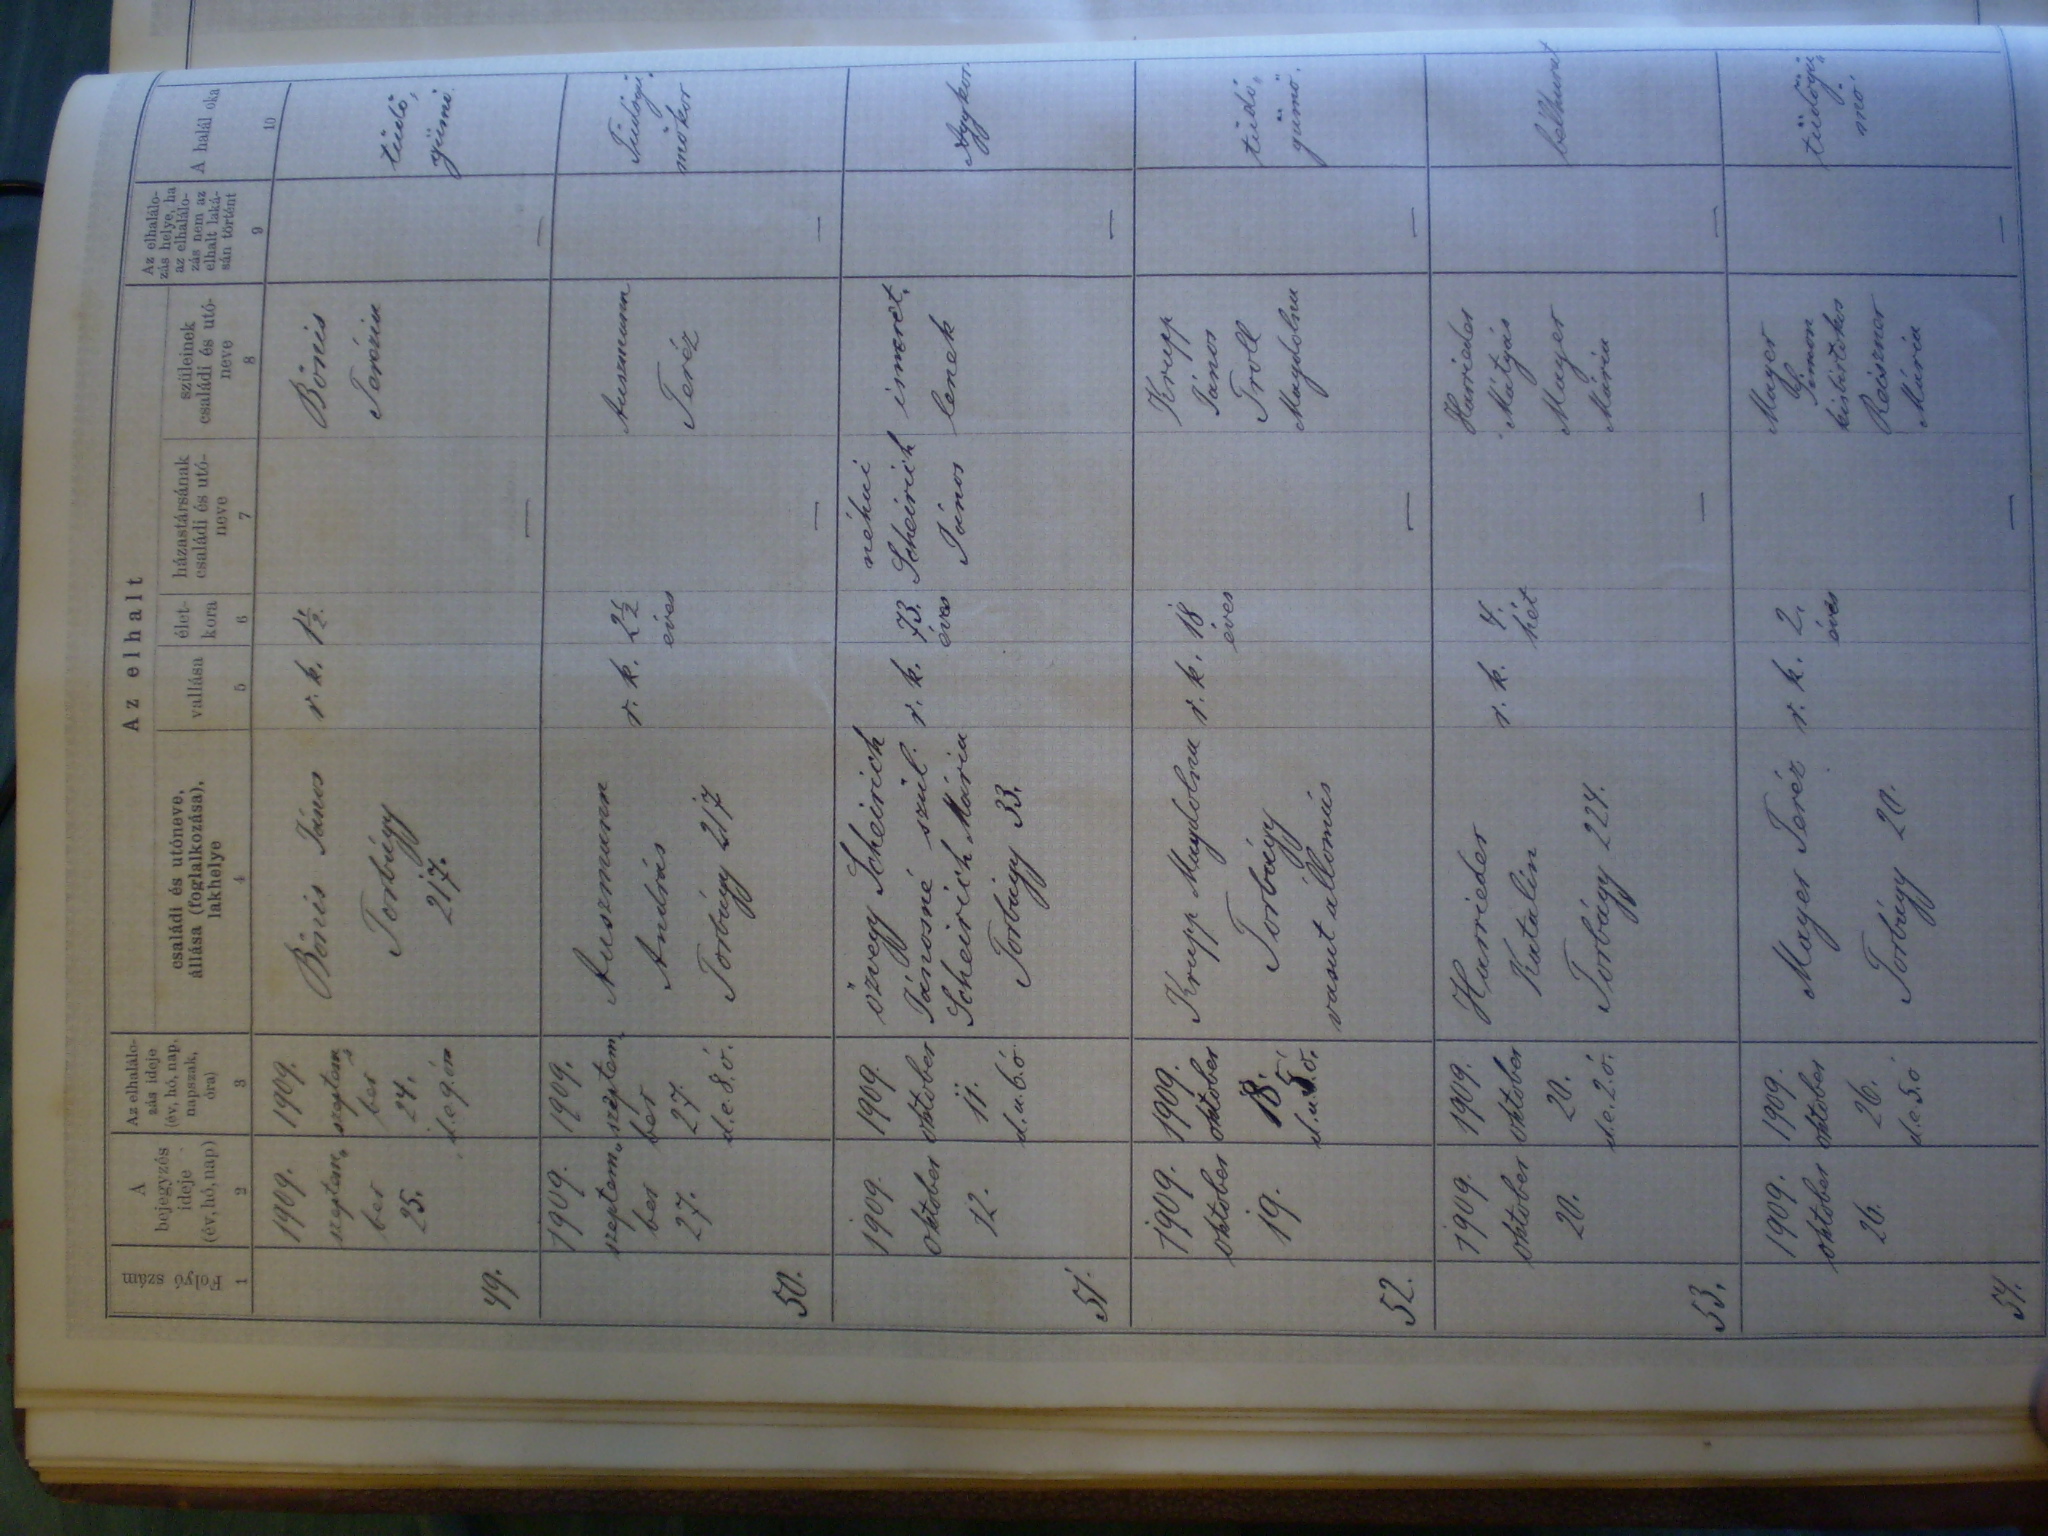 Az elhalt
Folyó szám
A bejegyzés ideje (év, hó, nap)
Az elhalálo-
zás ideje
(év, hó, nap,
napszak,
óra)
családi és utóneve,
állása (foglalkozása),
lakhelye
vallása
élet-
kora
házastársának
családi és utó-
neve
szüleinek
családi és utó-
neve
Az elhalálo-
zás helye, ha
az elhalálo-
zás nem az
elhalt laká-
sán történt
A halál oka
1 2 3 4 5 6 7 8 9 10
49.
1909.
szeptem-
ber
25.
1909.
szeptem-
ber
24.
d.e. 9. ó
Bónis János
Torbágy
217.
r. k.
1½.
—
Bónis
Terézia
—
tüdő,
gümő.
50.
1909.
szeptem-
ber
27.
1909.
szeptem-
ber
27.
d.e. 8. ó.
Auszmann
András
Torbágy 217
r. k.
2½
éves
—
Auszmann
Teréz
—
Tüdőgü-
mőkor
51.
1909.
október
12.
1909.
október
11.
d.u. 6. ó
özvegy Scheirich
Jánosné szül.
Scheirich Mária
Torbágy 33.
r. k.
73.
éves
néhai
Scheirich
János
ismeret,
lenek
—
Aggkor.
52.
1909.
október
19.
1909.
október
18.
d.u. 5. ó.
Krupp Magdolna
Torbágy
vasut állomás
r. k.
18
éves
—
Krupp
János
Troll
Magdolna
—
tüdő,
gümő.
53.
1909.
október
20.
1909.
október
20.
d.e. 2. ó.
Harrieder
Katalin
Torbágy 224.
r. k.
4.
hét
—
Harieder
Mátyás
Mayer
Mária
—
bélhurut
54.
1909.
október
26.
1909.
október
26.
d.e. 5. ó
Mayer Teréz
Torbágy 20.
r. k.
2.
éves
—
Mayer
Simon
kisbirtokos
Reiszner
Mária
—
tüdőgü-
mő.